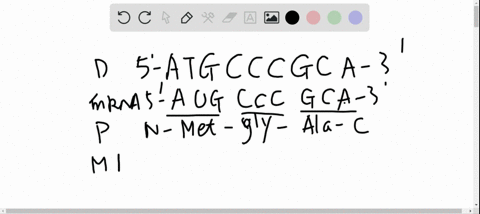 D 5'-ATGCCCGCA-3'
mRNA 5'-AUG CCC GCA-3'
P N-Met-gly-Ala-C
M1